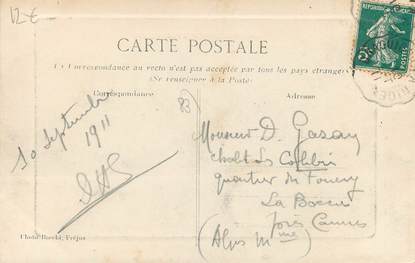 12€
CARTE POSTALE
La Correspondance au recto n'est pas acceptée par tous les pays étrangers
(Se renseigner à la Poste)
Correspondance
Adresse
83
10 Septembre
1911
Monsieur D.
chalet Les Colibri
quartier du
La Bocca
près Cannes
(Alpes Mmes)
Photo Bacchi, Fréjus
POSTES